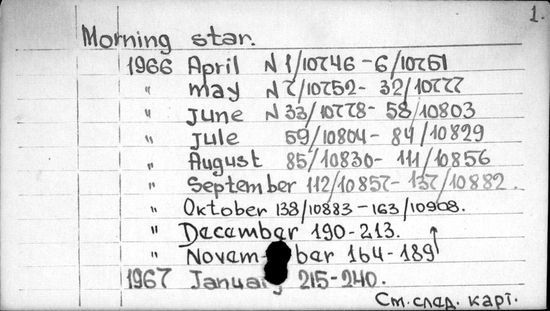 1.
Morning star.
1966 April N 1/10746-6/10751
" may N 7/10752- 32/10777
" June N 33/10778- 58/10803
" Jule 59/10804- 84/10829
" August 85/10830- 111/10856
" September 112/10857- 137/10882.
" Oktober 138/10883-163/10908.
" December 190-213.
" November 164-189
1967 January 215-240.
См. след. карт.